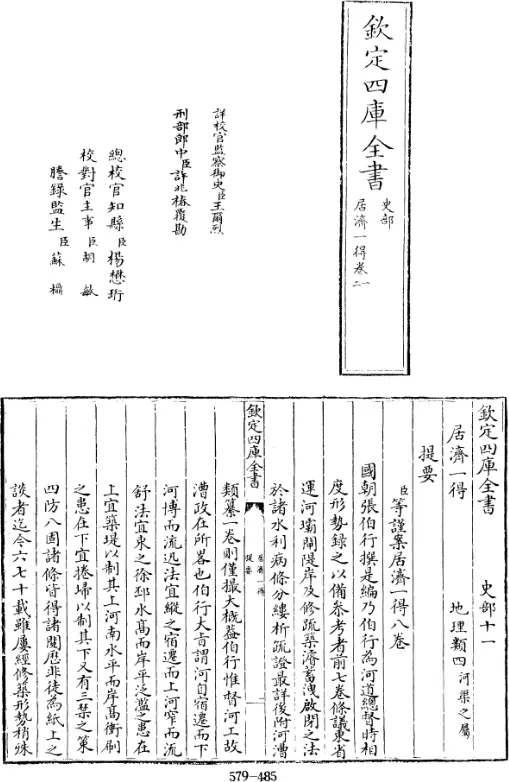 欽定四庫全書
史部
居濟一得卷一二
詳校官監察御史臣王爾烈
刑部郎中臣許兆椿覆勘
總校官知縣臣楊懋珩
校對官主事臣胡敏
謄錄監生臣蘇楫
欽定四庫全書
史部十一
居濟一得
地理類四河渠之屬
提要
臣等謹案居濟一得八卷
國朝張伯行撰是編乃伯行為河道總督時相
度形勢錄之以備參考者前七卷條議東省
運河壩閘隄岸及修疏築濬蓄洩啟閉之法
於諸水利病條分縷析疏證最詳後附河漕
欽定四庫全書
居濟一得
提要
一
類纂一卷則僅撮大概蓋伯行惟督河工故
漕政在所畧也伯行大旨謂河自宿遷而下
河博而流迅法宜縱之宿遷而上河窄而流
舒法宜束之徐邳水髙而岸平泛濫之患在
上宜築堤以制其上河南水平而岸髙衝刷
之患在下宜捲埽以制其下又有三禁之策
四防八固諸條皆得諸閱歷非徒為紙上之
談者迄今六七十載雖屢經修築形勢稍殊
579-485